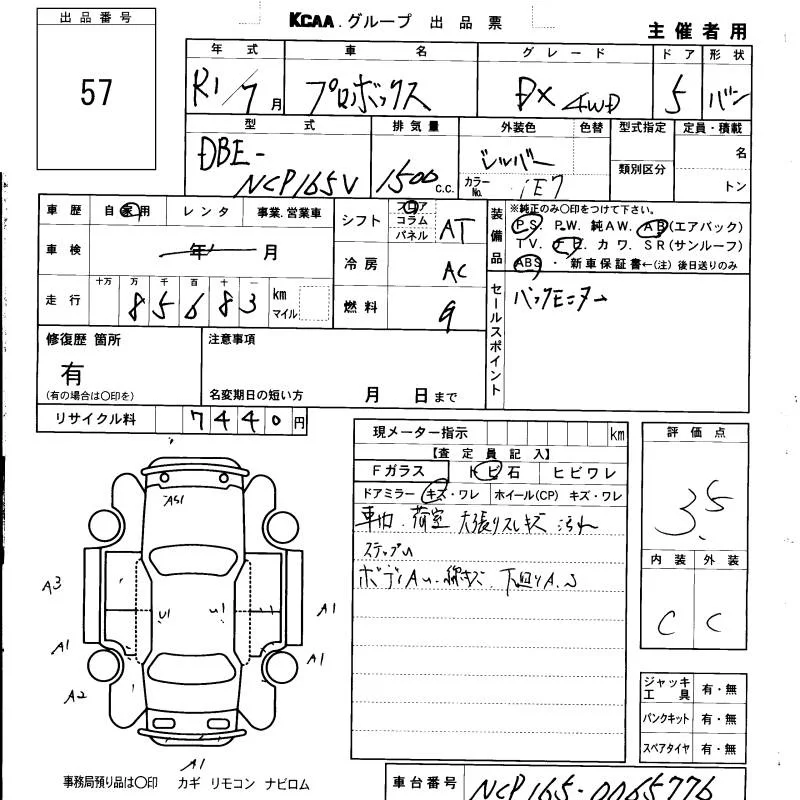 出品番号
57
KCAA.グループ 出品票
主催者用
年式 車名 グレード ドア 形状
R1/7月 プロボックス DX 4WD 5 バン
型式 排気量 外装色 色替 型式指定 定員・積載
DBE-
NCP165V 1500 c.c. シルバー カラーNo. 1E7 類別区分 名
トン
車歴 自家用 レンタ 事業.営業車
車検 年 月
走行 十万 万 千 百 十 一
8 5 6 8 3 km マイル
シフト フロア コラム パネル AT
冷房 AC
燃料 g
装備品 ※純正のみ○印をつけて下さい。
PS. P.W. 純AW. AB(エアバック)
TV. カワ. SR(サンルーフ)
ABS ・ 新車保証書←(注)後日送りのみ
セールスポイント
バックモニター
修復歴 箇所
有
(有の場合は○印を)
注意事項
名変期日の短い方 月 日まで
リサイクル料 7440円
現メーター指示 km
【査定員記入】
Fガラス トビ石 ヒビワレ
ドアミラー キズ・ワレ ホイール(CP) キズ・ワレ
車内.荷室 大張りスレキズ 汚れ
ステップU
ボディAU.線キズ. 下回りA.S
評価点
3.5
内装 外装
C C
ジャッキ工具 有・無
パンクキット 有・無
スペアタイヤ 有・無
AS1
A3
U1 U1
A1
A1
A1
A2
A1
事務局預り品は○印 カギ リモコン ナビロム
車台番号 NCP165-0065776